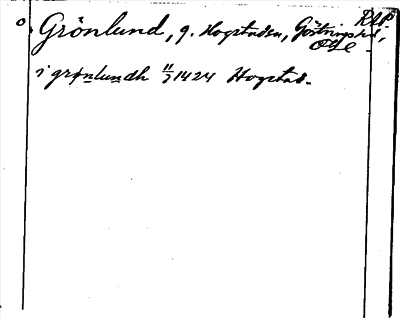 Grönlund, g. Hogstaden, Göstrings hd,
Ög
i grønlundh 11/7 1424 Hogstad.